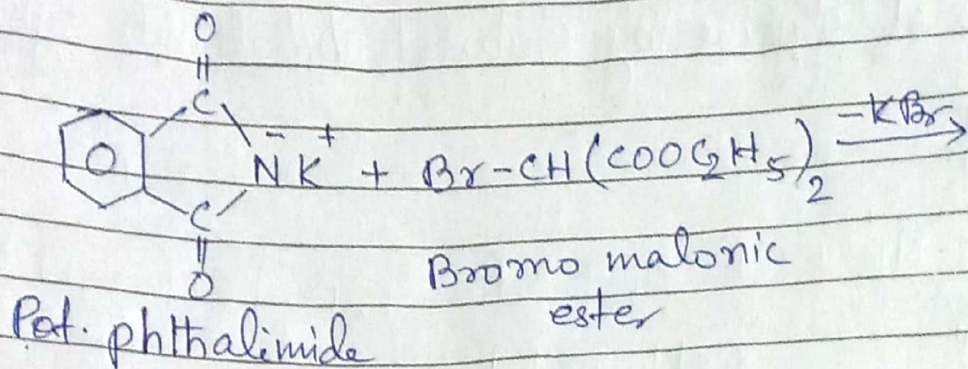 O
||
C
N⁻ K⁺ + Br-CH(COOC₂H₅)₂ -KBr→
C
||
O
Bromo malonic
ester
Pot. phthalimide